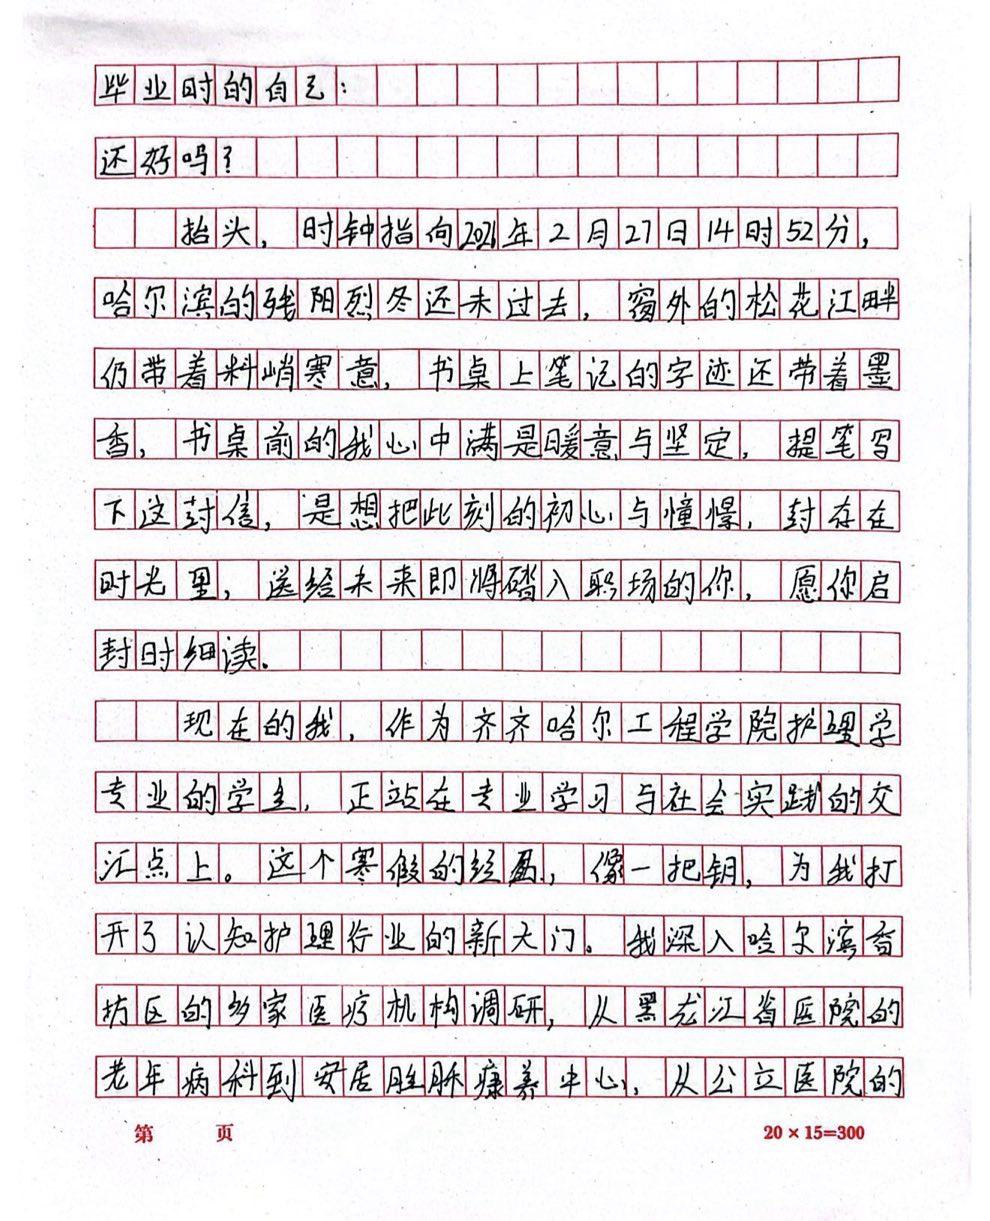 毕业时的自己：
还好吗？
抬头，时钟指向2026年2月27日14时52分，
哈尔滨的残阳烈冬还未过去，窗外的松花江畔
仍带着料峭寒意，书桌上笔记的字迹还带着墨
香，书桌前的我心中满是暖意与坚定，提笔写
下这封信，是想把此刻的初心与憧憬，封存在
时光里，送给未来即将踏入职场的你，愿你启
封时细读。
现在的我，作为齐齐哈尔工程学院护理学
专业的学生，正站在专业学习与社会实践的交
汇点上。这个寒假的经，像一把钥，为我打
开了认知护理行业的新天门。我深入哈尔滨香
坊区的多家医疗机构调研，从黑龙江省医院的
老年病科到安居胜康养中心，从公立医院的
第 页
20×15=300